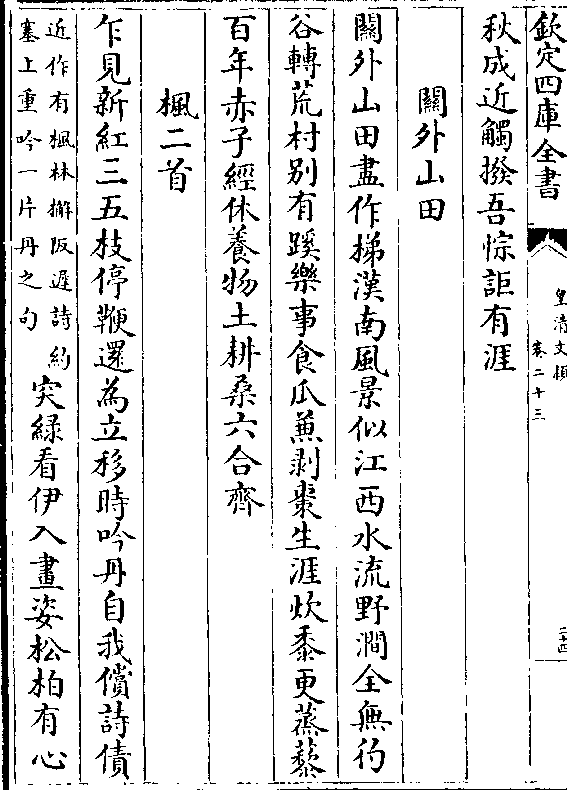 欽定四庫全書
皇清文穎
卷二十三
二十四
秋成近觸撥吾悰詎有涯
關外山田
關外山田盡作梯漢南風景似江西水流野澗全無彴
谷轉荒村别有蹊樂事食瓜兼剥棗生涯炊黍更蒸藜
百年赤子經休養物土耕桑六合齊
楓二首
乍見新紅三五枝停鞭還為立移時吟丹自我償詩債
近作有楓林擀阪遲詩約
塞上重吟一片丹之句
突緑看伊入畫姿松柏有心